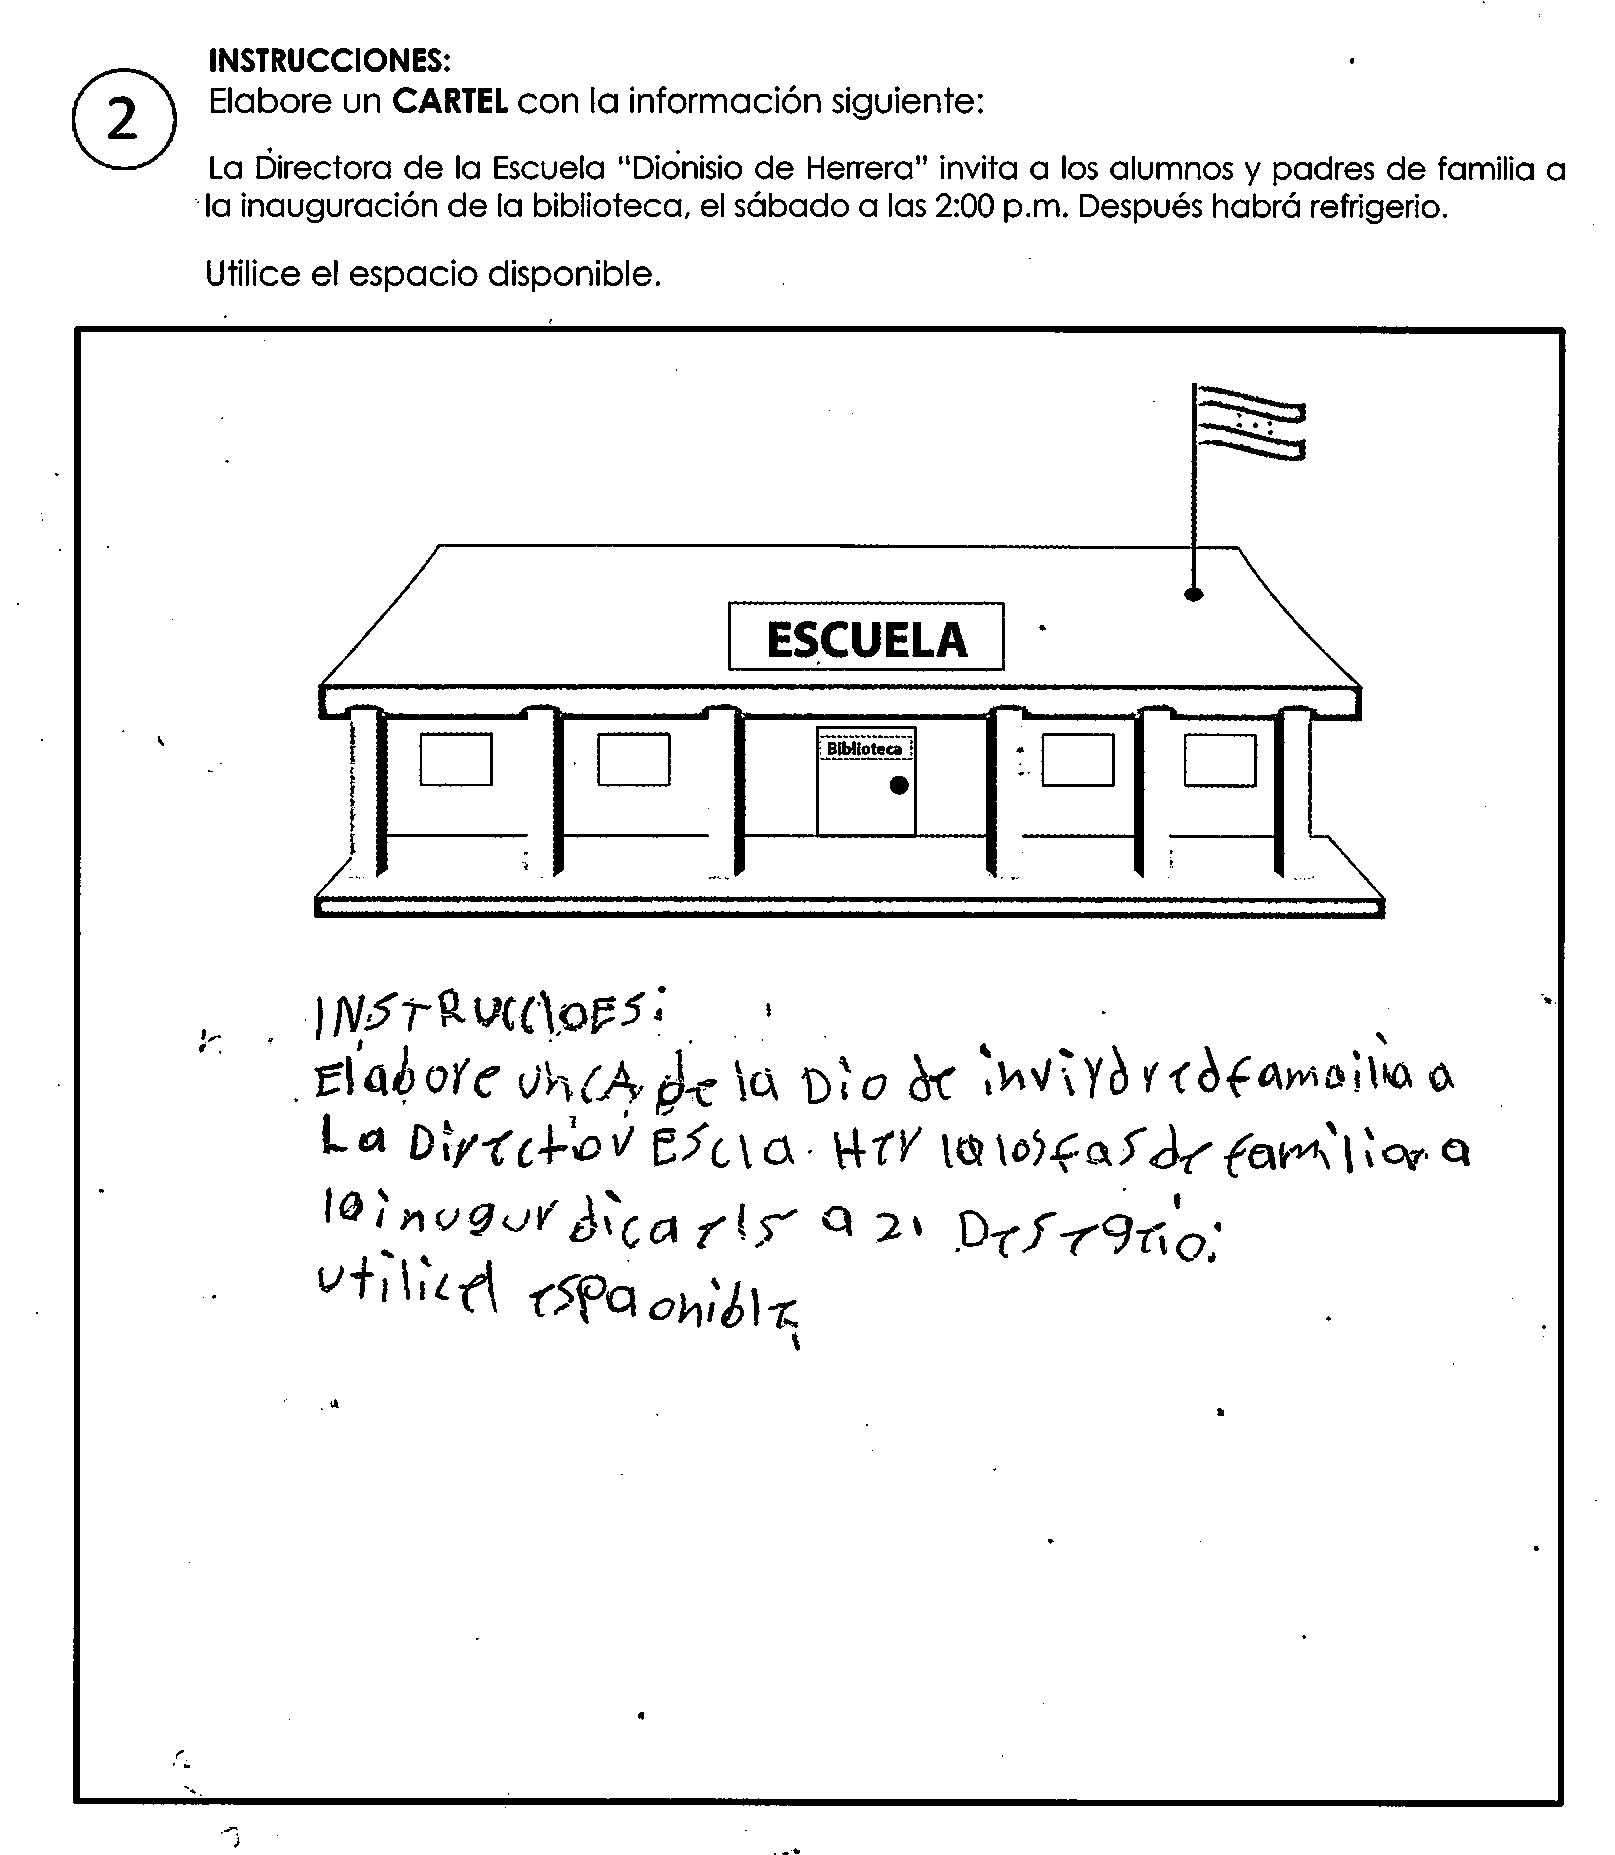 INSTRUCCIONES:
2
Elabore un CARTEL con la información siguiente:
La Directora de la Escuela "Dionisio de Herrera" invita a los alumnos y padres de familia a
la inauguración de la biblioteca, el sábado a las 2:00 p.m. Después habrá refrigerio.
Utilice el espacio disponible.
ESCUELA
Biblioteca
INSTRUCCIOES:
Elabore un CA de la Dio de a
La Escla. de familiar a
a 2
espaonible